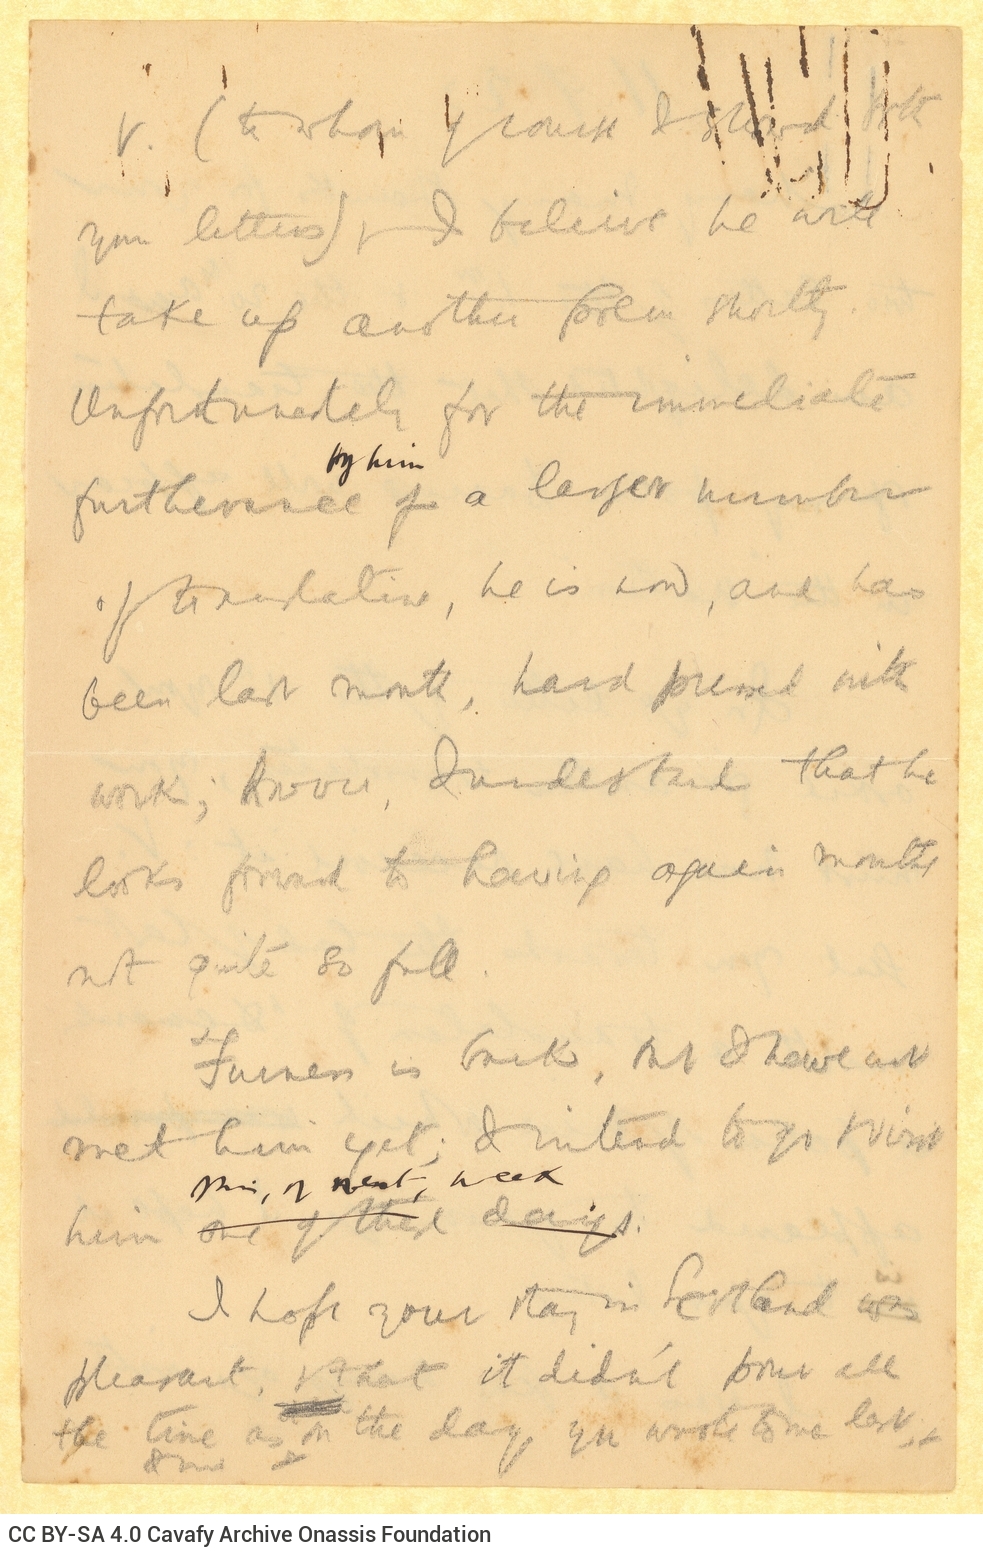 V. (to whom of course I showed both
your letters) & I believe he will
take up another poem shortly.
Unfortunately for the immediate
by him
furtherance of a larger number
of translations, he is now, and has
been last month, hard pressed with
work; however, I understand that he
looks forward to having again months
not quite so full.
Furness is back, but I have not
met him yet; I intend to go & visit
this, or next, week
him one of these days.
I hope your stay in Scotland was
pleasant, & that it didn't pour all
the time as on the day you wrote to me last, &